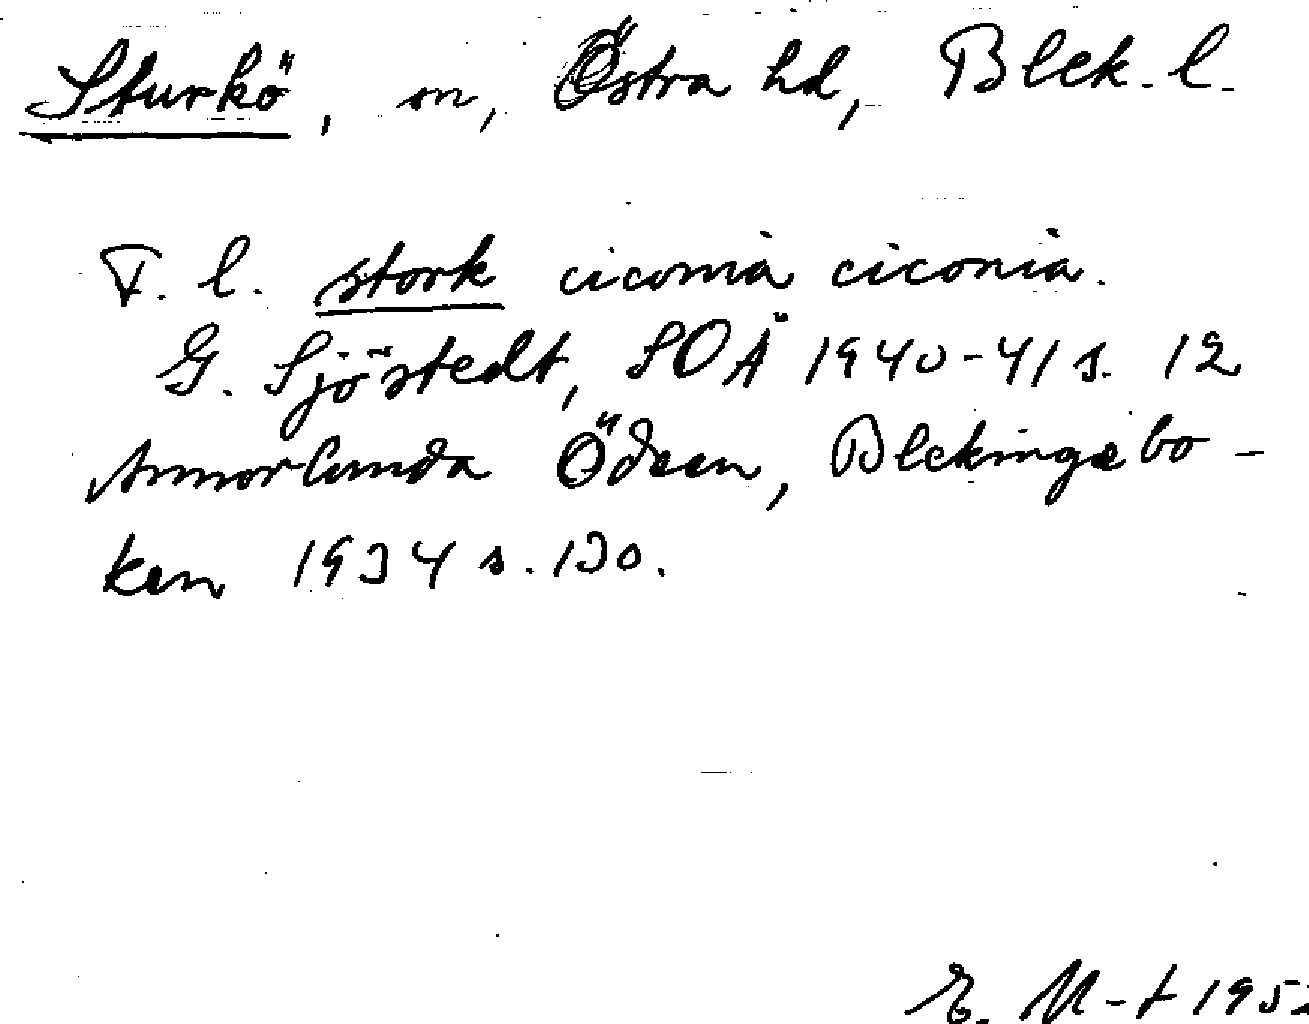 Sturkö, sn, Östra hd, Blek. l.
F. l. stork ciconia ciconia.
G. Sjöstedt, SOÄ 1940-41 s. 12
Annorlunda Ödeen, Blekingebo-
ken 1934 s. 130.
E. M-t 195